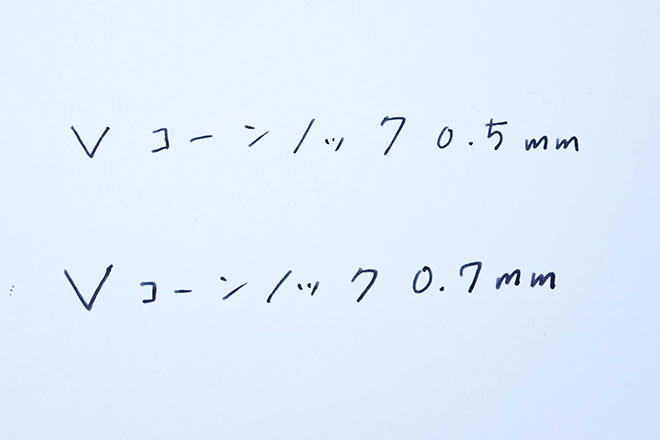 Vコーンノック 0.5mm
Vコーンノック 0.7mm